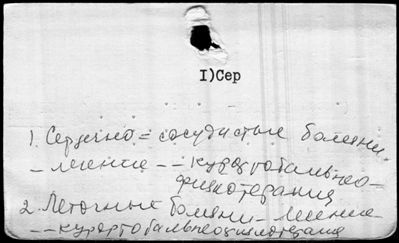 I)Сер
1. Сердечно=сосудистые болезни.
– лечение – – курортобальнео–
физиотерапия
2. Легочные болезни – лечение –
– – курортобальнеофизиотерапия